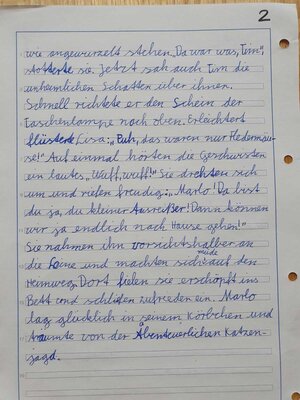 2
wie angewurzelt stehen. „Da war was, Tim"
stotterte sie. Jetzt sah auch Tim die
unheimlichen Schatten über ihnen.
Schnell richtete er den Schein der
Taschenlampe nach oben. Erleichtert
flüsterte Lisa: „Puh, das waren nur Fledermäu-
se!" Auf einmal hörten die Geschwister
ein lautes „Wuff, wuff!" Sie drehten sich
um und riefen freudig: „Marlo! Da bist
du ja, du kleiner Ausreißer! Dann können
wir ja endlich nach Hause gehen!"
Sie nahmen ihn vorsichtshalber an
die Leine und machten sich müde auf den
Heimweg. Dort fielen sie erschöpft ins
Bett und schliefen zufrieden ein. Marlo
lag glücklich in seinem Körbchen und
träumte von der Abenteuerlichen Katzen-
jagd.